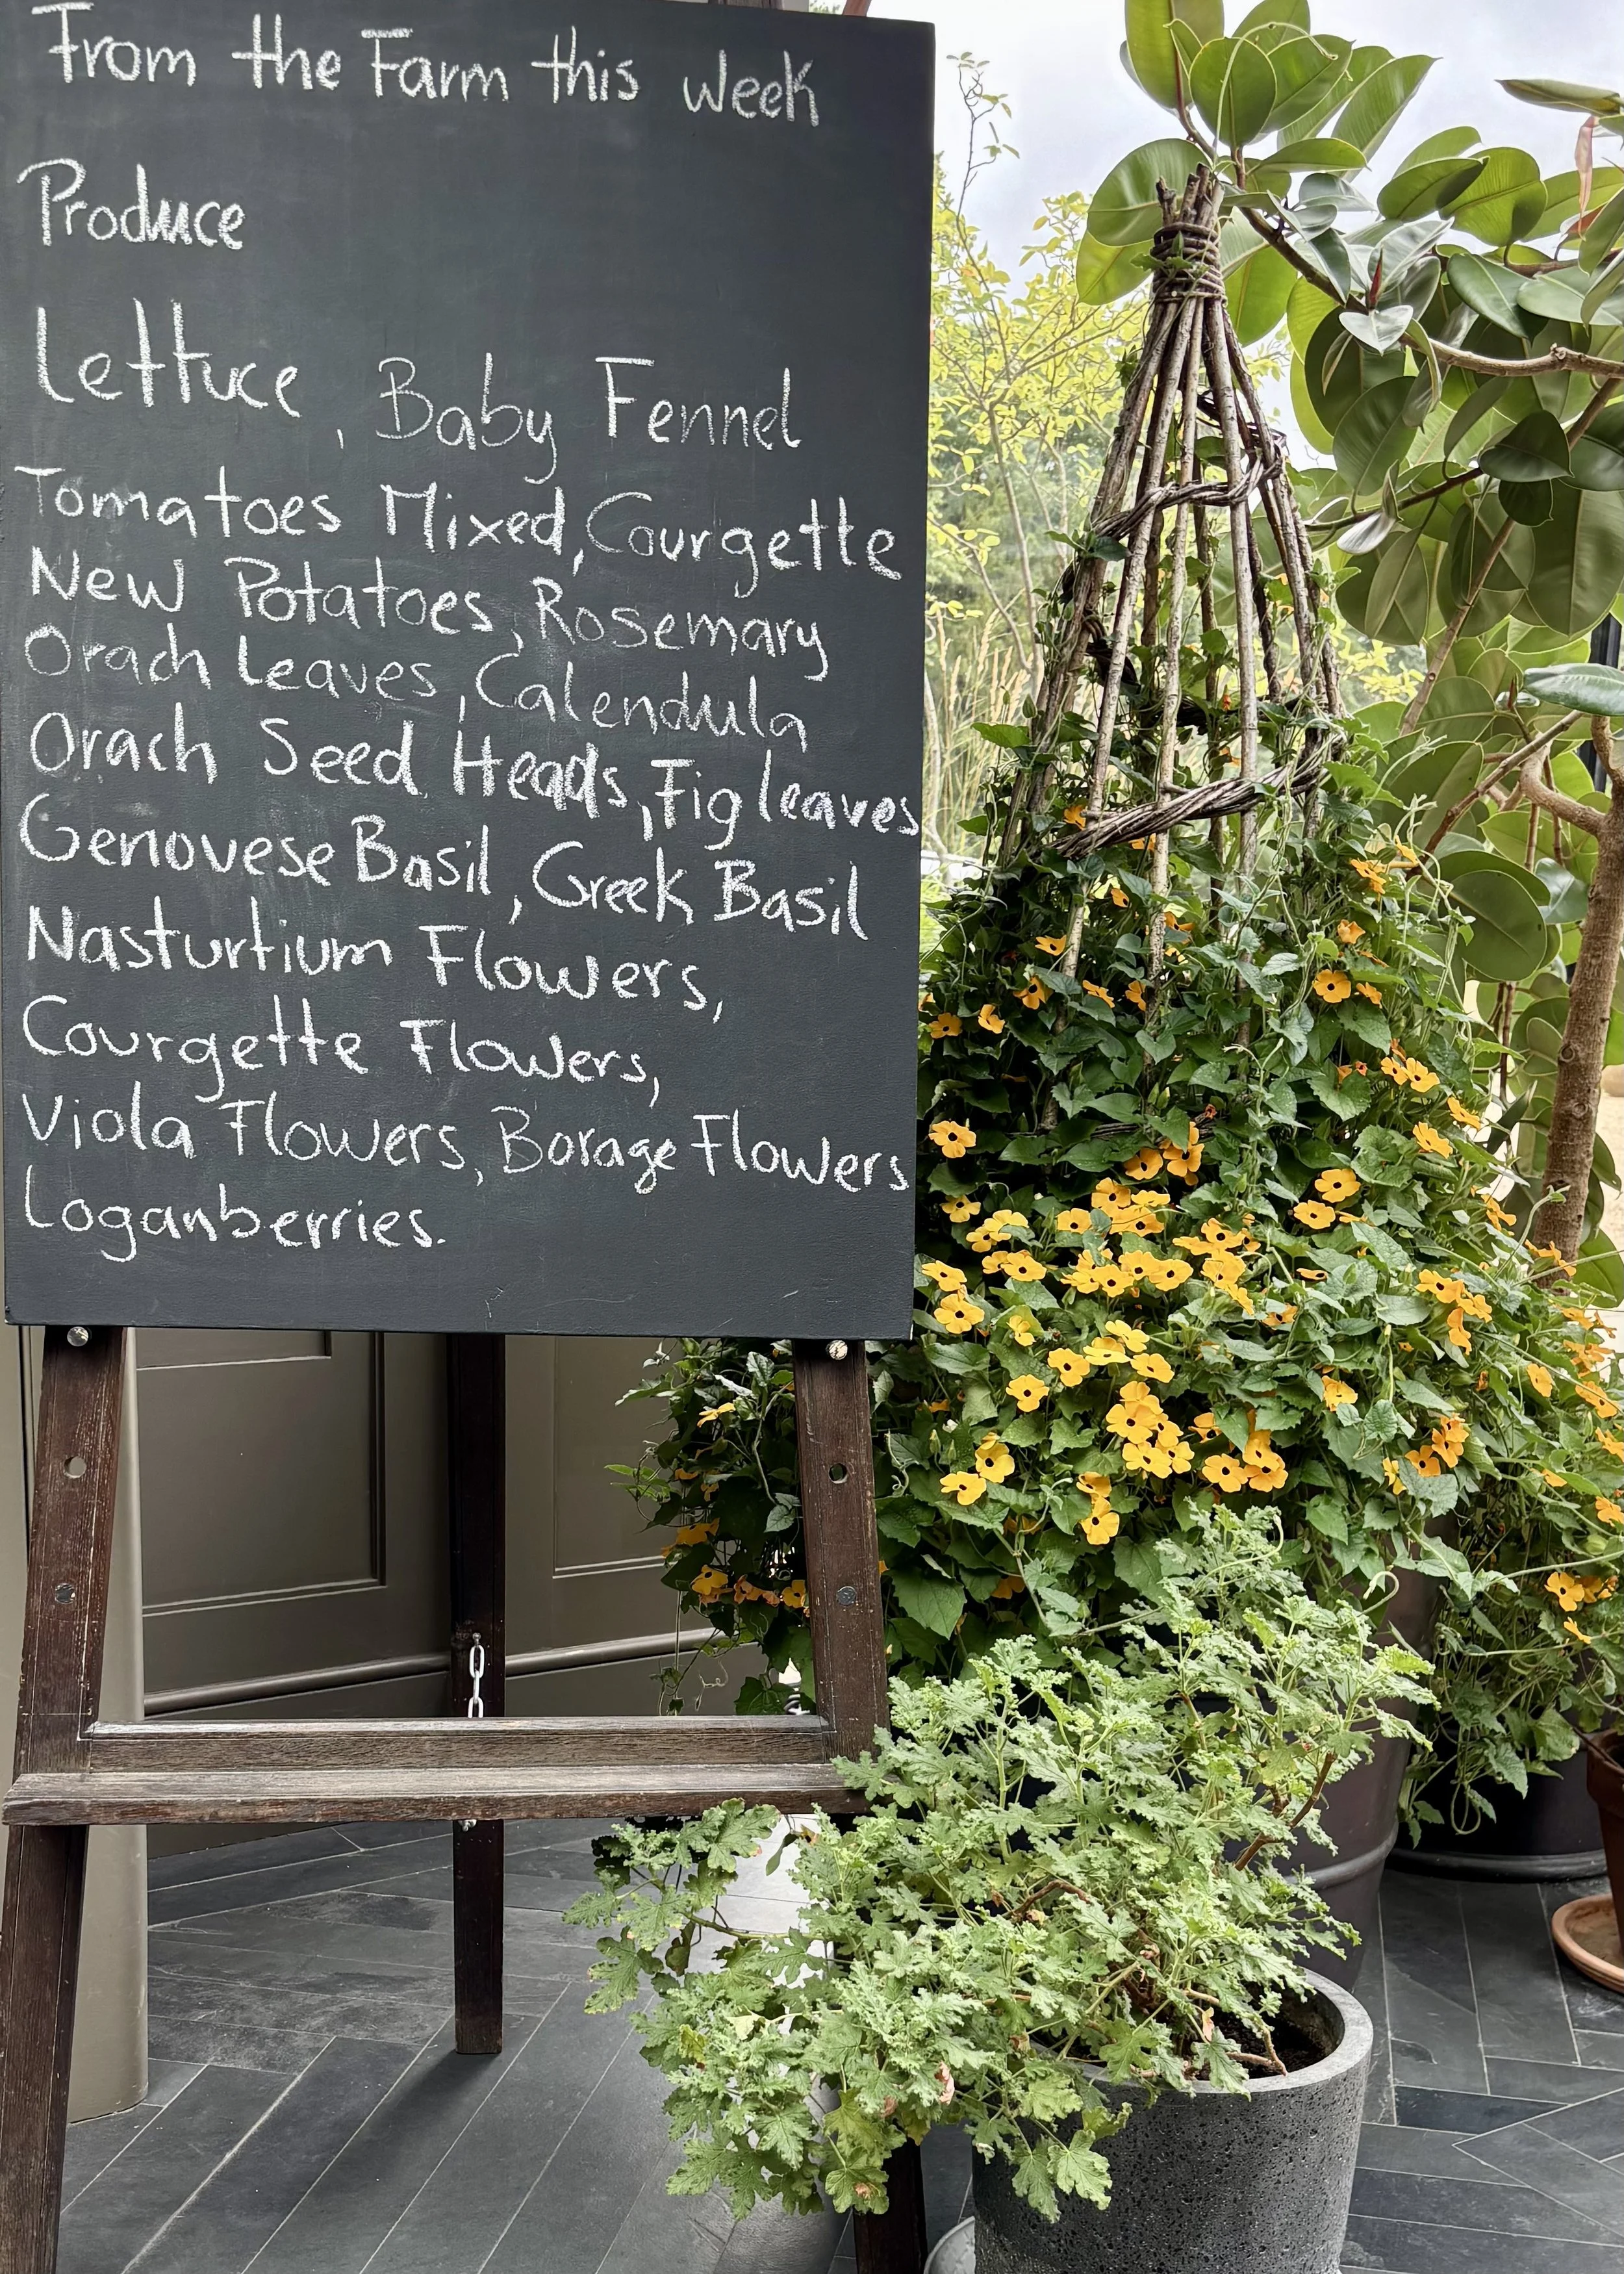 From the Farm this week
Produce
Lettuce, Baby Fennel
Tomatoes Mixed, Courgette
New Potatoes, Rosemary
Orach Leaves, Calendula
Orach Seed Heads, Fig leaves
Genovese Basil, Greek Basil
Nasturtium Flowers,
Courgette Flowers,
Viola Flowers, Borage Flowers
Loganberries.